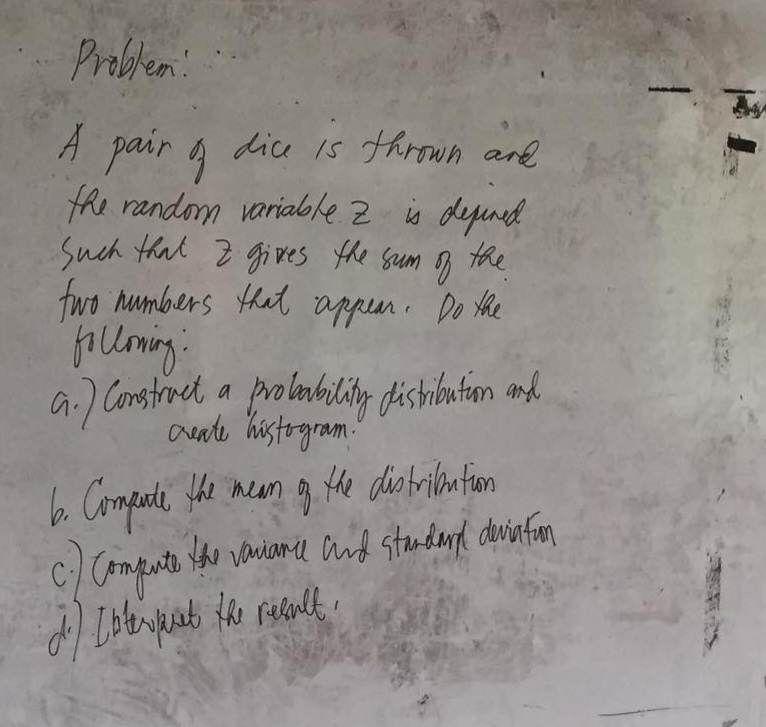 Problem:
A pair of dice is thrown and
the random variable Z is defined
such that Z gives the sum of the
two numbers that appear. Do the
following:
a.) Construct a probability distribution and
create histogram.
b. Compute the mean of the distribution
c.) Compute the variance and standard deviation
d.) Interpret the result.